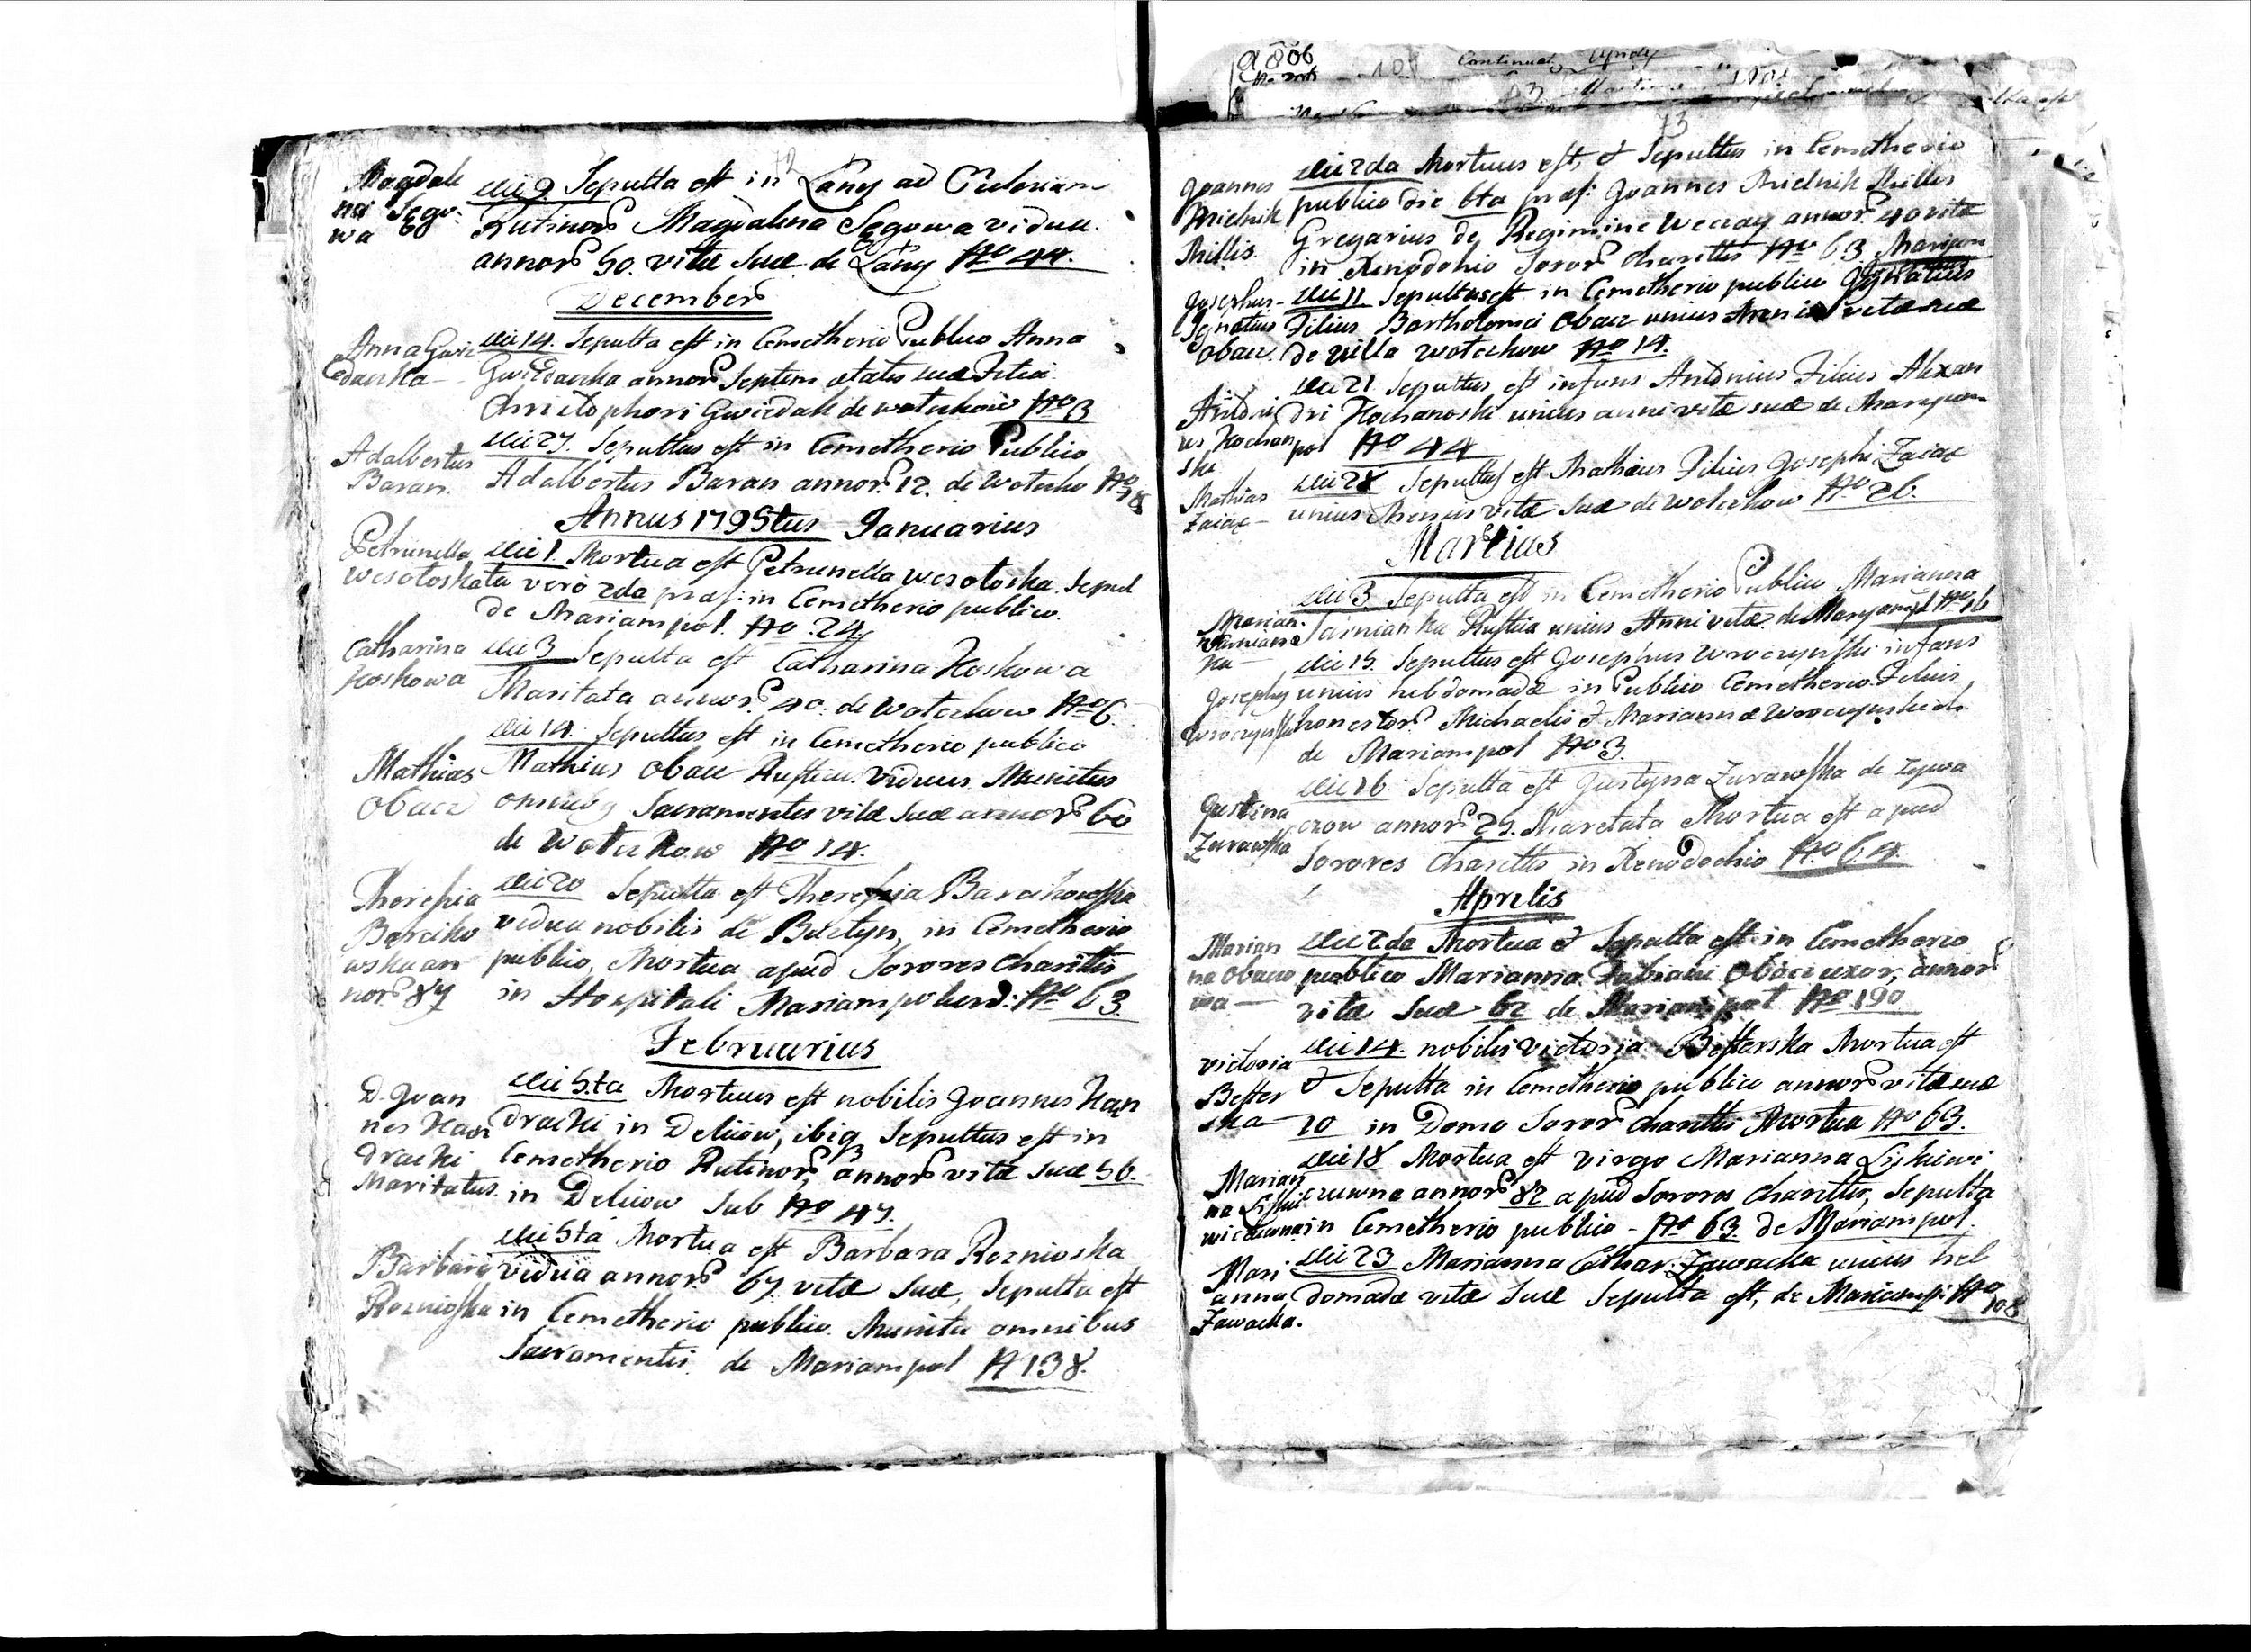 Magdale
na Sego:
wa
die 9. Sepulta est in Łany ad Ecclesiam
Rutinor̃ Magdalena Segowa vidua.
annor̃ 50. vitæ suæ de Łany No 44.
December
Anna Gwiz
daczka
die 14. Sepulta est in Cemetherio Publico Anna
Gwizdaczka annor̃ Septem ætatis suæ Filia
Christophori Gwizdak de wotczkow No 3
Adalbertus
Baran.
die 27. Sepultus est in Cemetherio Publico
Adalbertus Baran annor̃ 12. de Wotczko No 18
Annus 1795tus Januarius
Petrunella
Wesołoska
die 1. Mortua est Petrunella Wesołoska. Sepul
ta vero 2da præs: in Cemetherio publico.
de Mariampol. No 24
Catharina
Koskowa
die 3 Sepulta est Catharina Koskowa
Maritata annor̃ 40: de Wotczkow No 6.
die 14. Sepultus est in Cemetherio publico
Mathias
Obacz
Mathias Obacz Rusticu. Viduus Munitus
omnibq Sacramentis vitæ suæ annor̃ 60
de Wotczkow No 14.
Theresia
Barciko
wska an
nor̃ 87
die 20 Sepulta est Theressia Barcikowska
vidua nobilis de Bursztyn, in Cemetherio
publico, Mortua apud Sorores Charittis
in Hospitali Mariampoliens: No 63.
Februarius
D. Joan
nes Kan
dracki
Maritatus.
die 5.ta Mortuus est nobilis Joannes Kan
dracki in Deliiow, ibiq Sepultus est in
Cemetherio Rutinor̃, annor̃ vitæ suæ 56.
in Deliiow Sub No 47.
die 5ta Mortua est Barbara Roznioska
Barbara
Roznioska
vidua annor̃ 67 vitæ suæ, Sepulta est
in Cemetherio publico. Munita omnibus
Sacramentis. de Mariampol N 138.
13
Joannes
Mielnik
Millis.
die 2da Mortuus est, & Sepultus in Cemetherio
publico die 6ta præs: Joannes Mielnik Milles
Gregarius de Regimine Weczay annor̃ 40 vitæ
in Xenodohio Soror̃ Charittis No 63 Mariam
Josephus
Ignatius
Obacz.
die 11 Sepultus est in Cemetherio publico Ignatius
Filius Bartholomei Obacz unius Anni vitæ suæ
de Villa Wotczkow No 14.
Antoni
us Kochan
ski
die 21. Sepultus est infans Antonius Filius Alexan
dri Kochanoski unius anni vitæ suæ de Maryam
pol No 44
Mathias
Zaiac
die 28 Sepultus est Mathias Filius Josephi Zaiac
unius Mensis vitæ suæ de Wotczkow No 26.
Martius
Marian
na Tarnians
ka
die 3 Sepulta est in Cemetherio Publico Marianna
Tarnianka Rustica unius Anni vitæ de Maryampol No 16
die 15. Sepultus est Josephus Wroczynski infans
Josephus
Wroczynski
unius hebdomadæ in Publico Cemetherio Filius
honestor̃ Michaelis & Mariannæ Wroczynskich
de Mariampol No 3.
Justina
Zurawska
die 16. Sepulta est Justyna Zurawska de Zywa
czow annor̃ 25. Maritata Mortua est apud
Sorores Charittis in Xenodochio No 64.
Aprilis
Marian
na Obaczo
wa
die 2da Mortua & Sepulta est in Cemetherio
publico Marianna Fabiani Obacz uxor, annor̃
vitæ suæ 62 de Mariampol No 190
Victoria
Bester
ska
die 14. nobilis Victoria Besterska Mortua est
& Sepulta in Cemetherio publico annor̃ vitæ suæ
20 in Domo Soror̃ Charittis Mortua No 63.
Marian
na Liski
wiczuwna
die 18 Mortua est virgo Marianna Liskiewi
czuwna annor̃ 82 apud Sorores Charittis, Sepulta
in Cemetherio publico - No 63. de Mariampol.
Mari
anna
Zawacka.
die 23 Marianna Cathar. Zawacka unius heb
domadæ vitæ suæ Sepulta est, de Mariamp: No 108